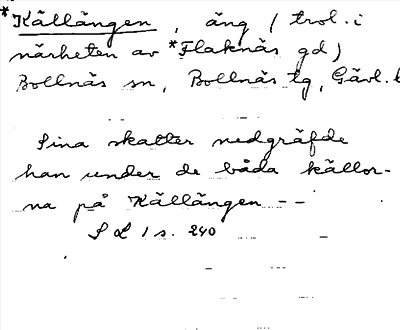 *Källängen, äng (trol. i
närheten av *Flaknäs gd)
Bollnäs sn, Bollnäs tg, Gävl. l
Sina skatter nedgräfde
han under de båda källor-
na på Källängen --
S L 1 s. 240